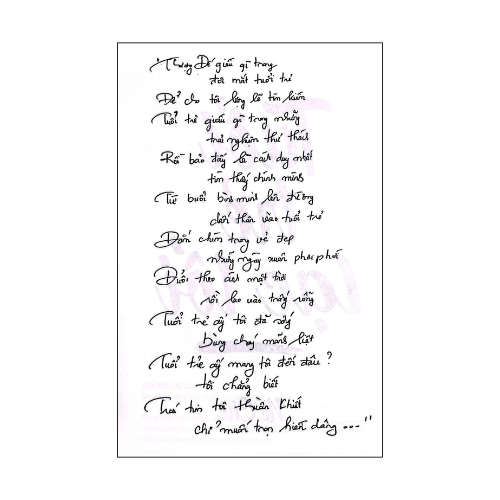 Thượng Đế giấu gì trong
đôi mắt tuổi trẻ
Để cho tôi lặng lẽ tìm kiếm
Tuổi trẻ giấu gì trong những
trải nghiệm thử thách
Rồi bảo đấy là cách duy nhất
tìm thấy chính mình
Từ buổi bình minh lên đường
dấn thân vào tuổi trẻ
Đắm chìm trong vẻ đẹp
những ngày xuân phơi phới
Đuổi theo ánh mặt trời
rồi lao vào trống rỗng
Tuổi trẻ ấy tôi đã sống
bùng cháy mãnh liệt
Tuổi trẻ ấy mang tôi đến đâu?
tôi chẳng biết
Trái tim tôi thuần khiết
chỉ muốn trọn hiến dâng..."